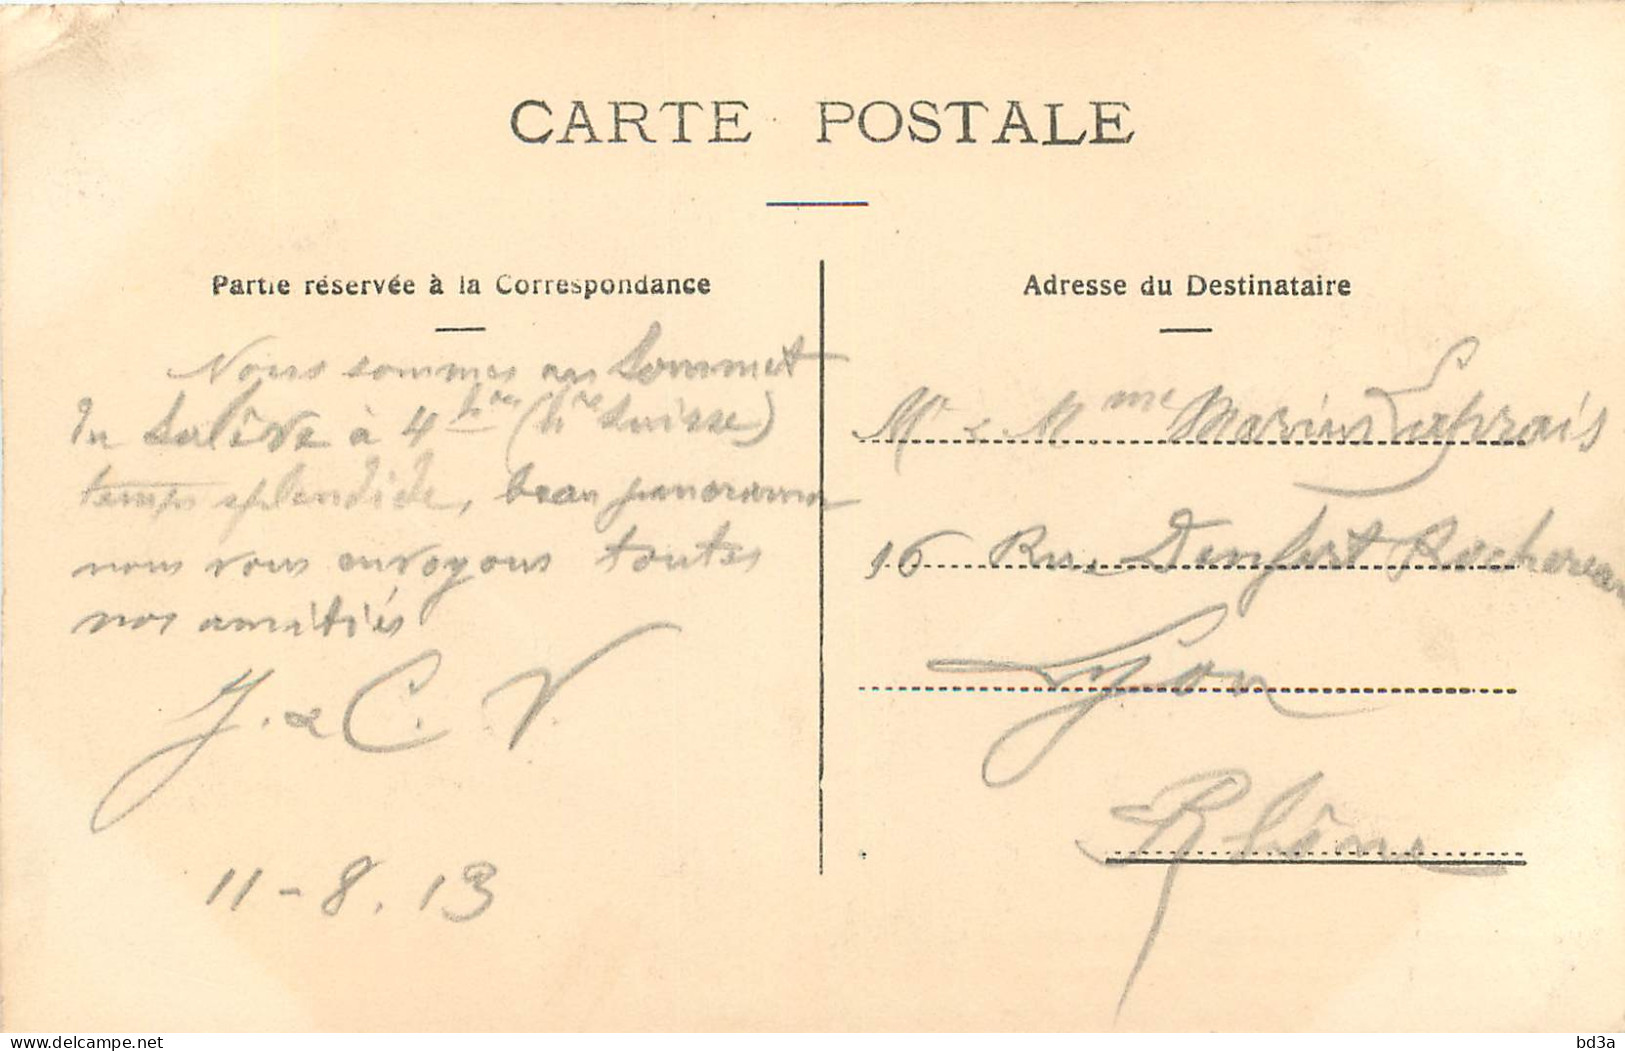 CARTE POSTALE
Partie réservée à la Correspondance
Nous sommes au Sommet
du Salève à 4 hres (hre Suisse)
temps splendide, beau panorama
nous vous envoyons toutes
nos amitiés
J. & C. V.
11-8.13
Adresse du Destinataire
Mr & Mme Marius
16 Rue Denfert Rochereau
Lyon
Rhône
delcampe.net
bd3a